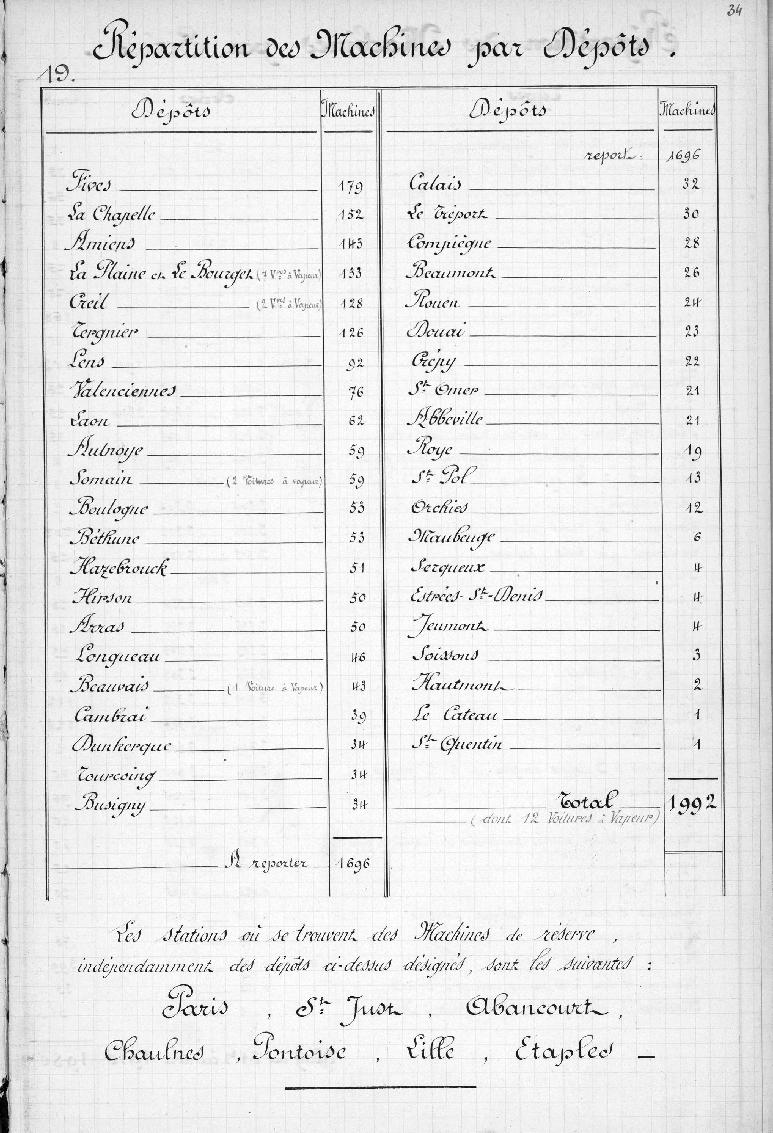 34
Répartition des Machines par Dépôts.
19.
Dépôts Machines
Fives 179
La Chapelle 152
Amiens 143
La Plaine et Le Bourget (7 Vres à Vapeur) 133
Creil (2 Vres à Vapeur) 128
Tergnier 126
Lens 92
Valenciennes 76
Laon 62
Aulnoye 59
Somain (2 Voitures à vapeur) 59
Boulogne 53
Béthune 53
Hazebrouck 51
Hirson 50
Arras 50
Longueau 46
Beauvais (1 Voiture à Vapeur) 43
Cambrai 39
Dunkerque 34
Tourcoing 34
Busigny 34
A reporter 1696
Dépôts Machines
report: 1696
Calais 32
Le Tréport 30
Compiègne 28
Beaumont 26
Rouen 24
Douai 23
Crépy 22
St Omer 21
Abbeville 21
Roye 19
St Pol 13
Orchies 12
Maubeuge 6
Serqueux 4
Estrées-St-Denis 4
Jeumont 4
Soissons 3
Hautmont 2
Le Cateau 1
St Quentin 1
Total 1992
(dont 12 Voitures à Vapeur)
Les stations où se trouvent des Machines de réserve,
indépendamment des dépôts ci-dessus désignés, sont les suivantes :
Paris, St Just, Abancourt,
Chaulnes, Pontoise, Lille, Etaples —